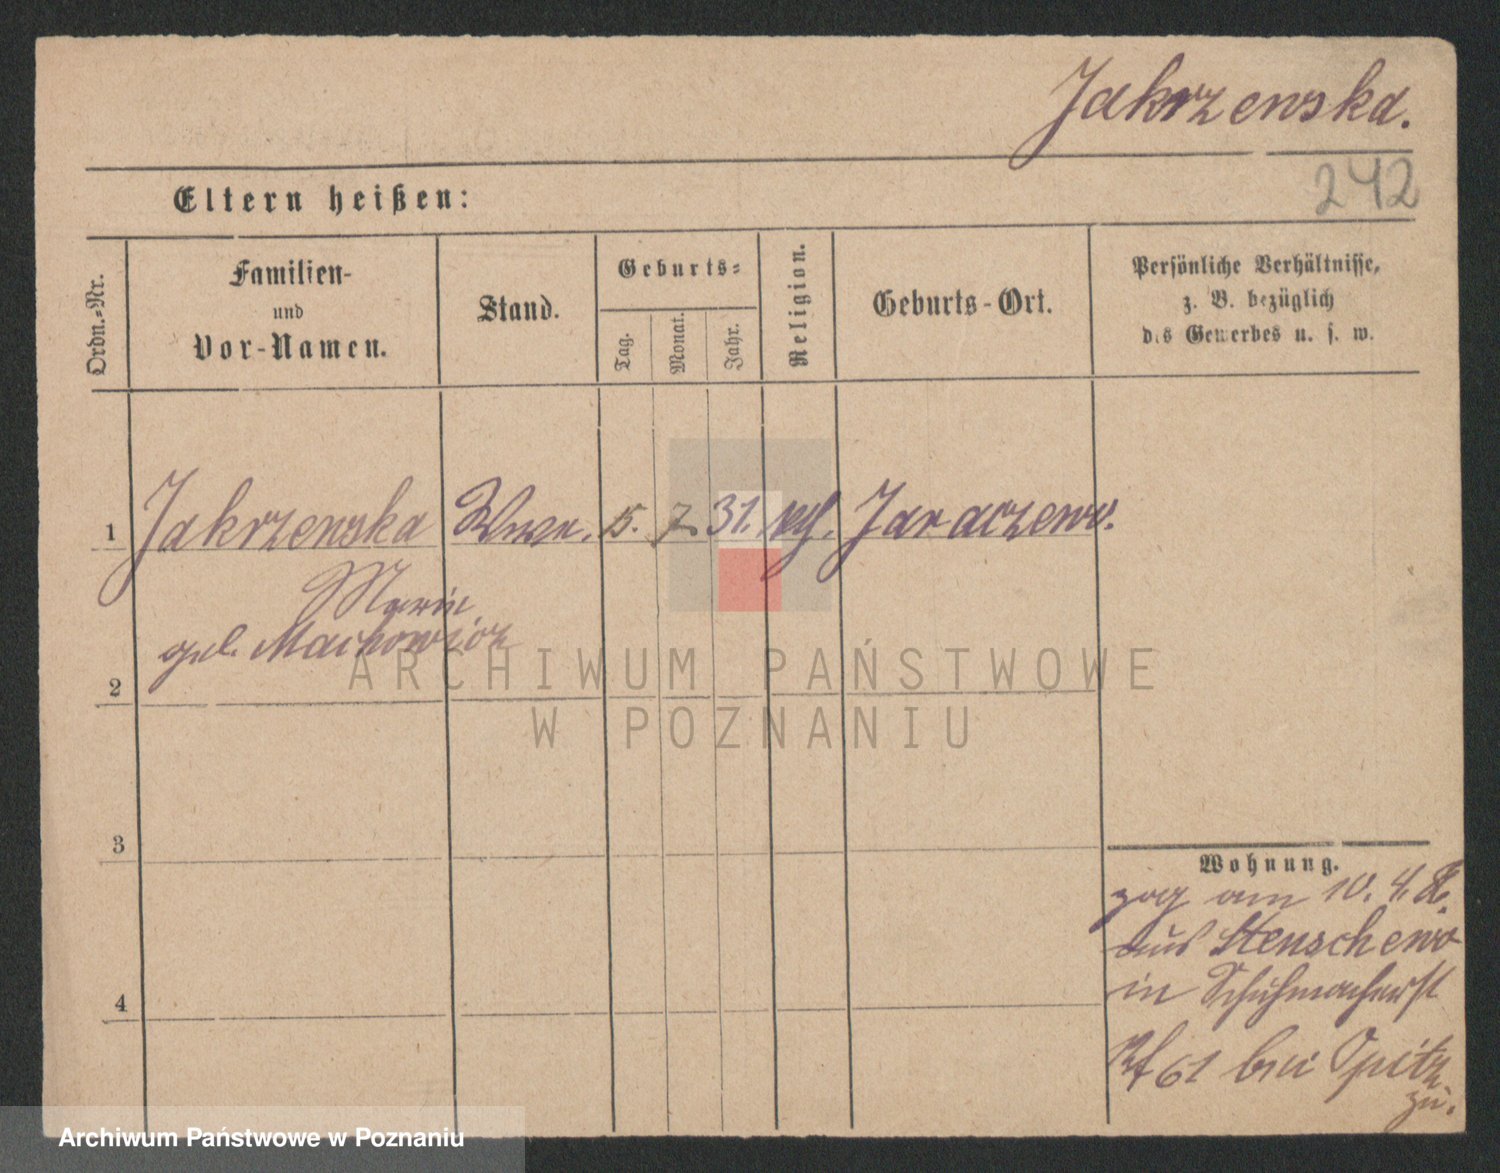 Jakrzewska.
242
Eltern heißen:
Ordn.-Nr.
Familien-
und
Vor-Namen.
Stand.
Geburts-
Tag.
Monat.
Jahr.
Religion.
Geburts-Ort.
Persönliche Verhältnisse,
z. B. bezüglich
des Gewerbes u. s. w.
1 Jakrzewska Wwe. 15. 7. 31. kth. Jaraczewo.
Marie
geb. Maichowicz
2
3
4
Wohnung.
zog am 10. 4.
aus Stenschewo
in Schuhmacherst
61 bei Opitz
zu.
ARCHIWUM PAŃSTWOWE
W POZNANIU
Archiwum Państwowe w Poznaniu